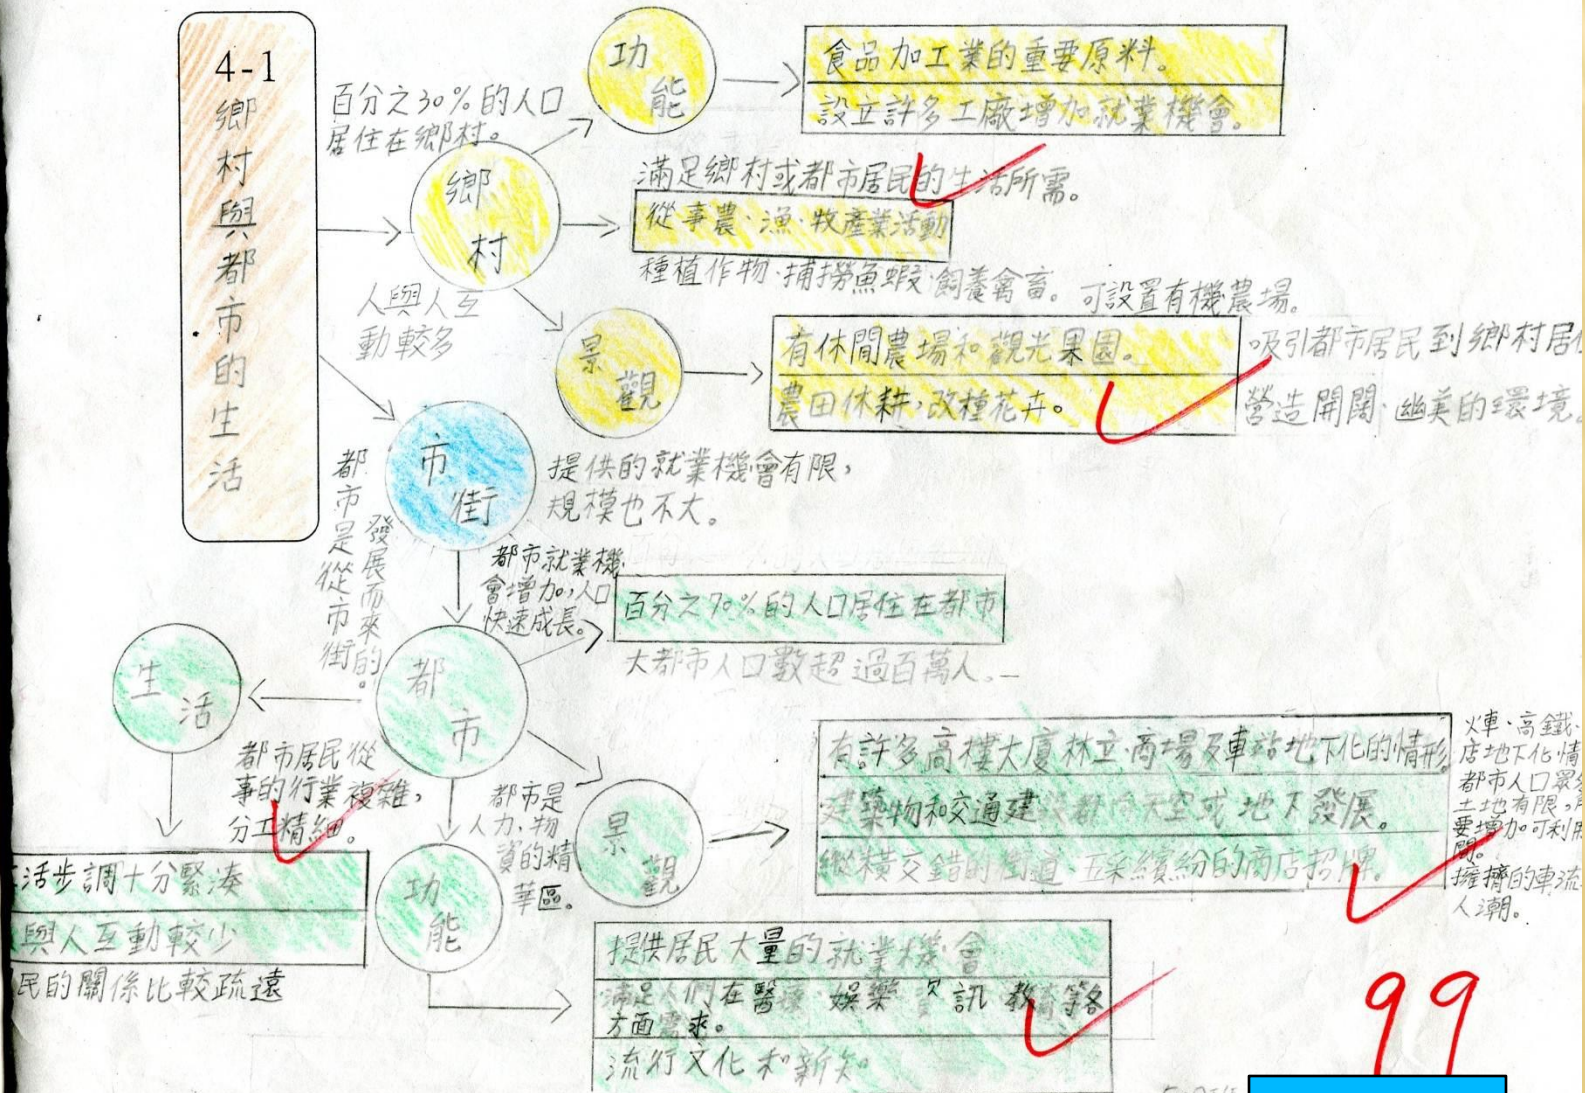 4-1
鄉村與都市的生活
百分之30%的人口
居住在鄉村。
功能
食品加工業的重要原料。
設立許多工廠增加就業機會。
鄉村
滿足鄉村或都市居民的生活所需。
從事農、漁、牧產業活動
種植作物、捕撈魚蝦、飼養禽畜。
人與人互
動較多
景觀
可設置有機農場。
有休閒農場和觀光果園。
農田休耕,改種花卉。
吸引都市居民到鄉村居
營造開闊、幽美的環境。
市街
提供的就業機會有限,
規模也不大。
都市是從市街
發展而來的。
都市就業機
會增加,人口
快速成長。
百分之70%的人口居住在都市
大都市人口數超過百萬人。
都市
生活
都市居民從
事的行業複雜,
分工精細。
活步調十分緊湊
與人互動較少
民的關係比較疏遠
都市是
人力、物
資的精
華區。
景觀
有許多高樓大廈林立、商場及車站地下化的情形
建築物和交通建設都向天空或地下發展。
縱橫交錯的街道、五彩繽紛的商店招牌。
火車、高鐵、
店地下化情
都市人口眾多
土地有限,所
要增加可利用
間。
擁擠的車流
人潮。
功能
提供居民大量的就業機會
滿足人們在醫療、娛樂、資訊、教育等各
方面需求。
流行文化和新知
99